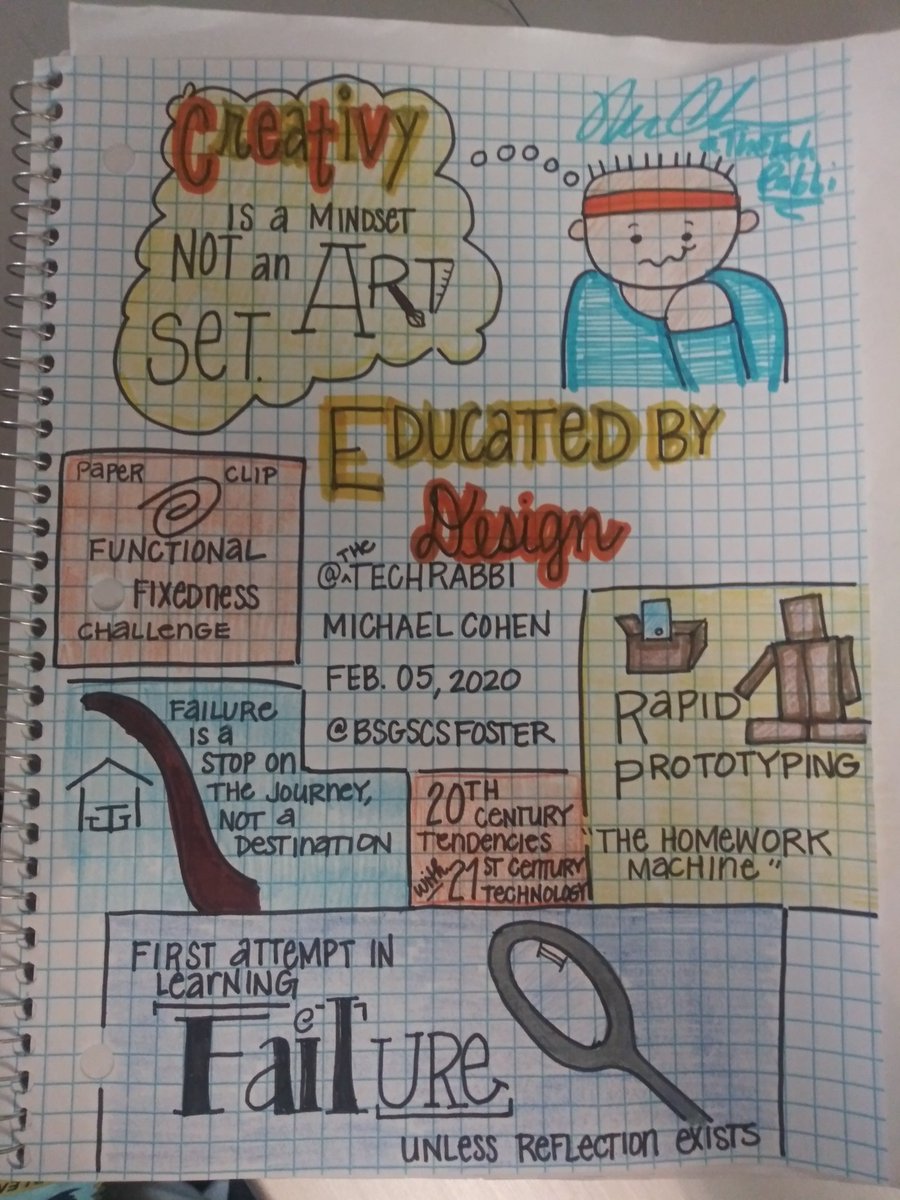 Creativy
IS a MINDSET
NOT an ART
SET.
@TheTech
Rabbi
EDUCATED BY
Design
PAPER CLIP
FUNCTIONAL
FIXEDNESS
CHALLENGE
@^THE TECHRABBI
MICHAEL COHEN
FEB. 05, 2020
@BSGSCSFOSTER
RAPID
PROTOTYPING
"THE HOMEWORK
MACHINE"
FAILURE
IS a
STOP ON
THE JOURNEY,
NOT a
DESTINATION
20TH
CENTURY
TENDENCIES
with 21ST CENTURY
TECHNOLOGY
FIRST ATTEMPT IN
LEARNING
FaiLURE
UNLESS REFLECTION EXISTS